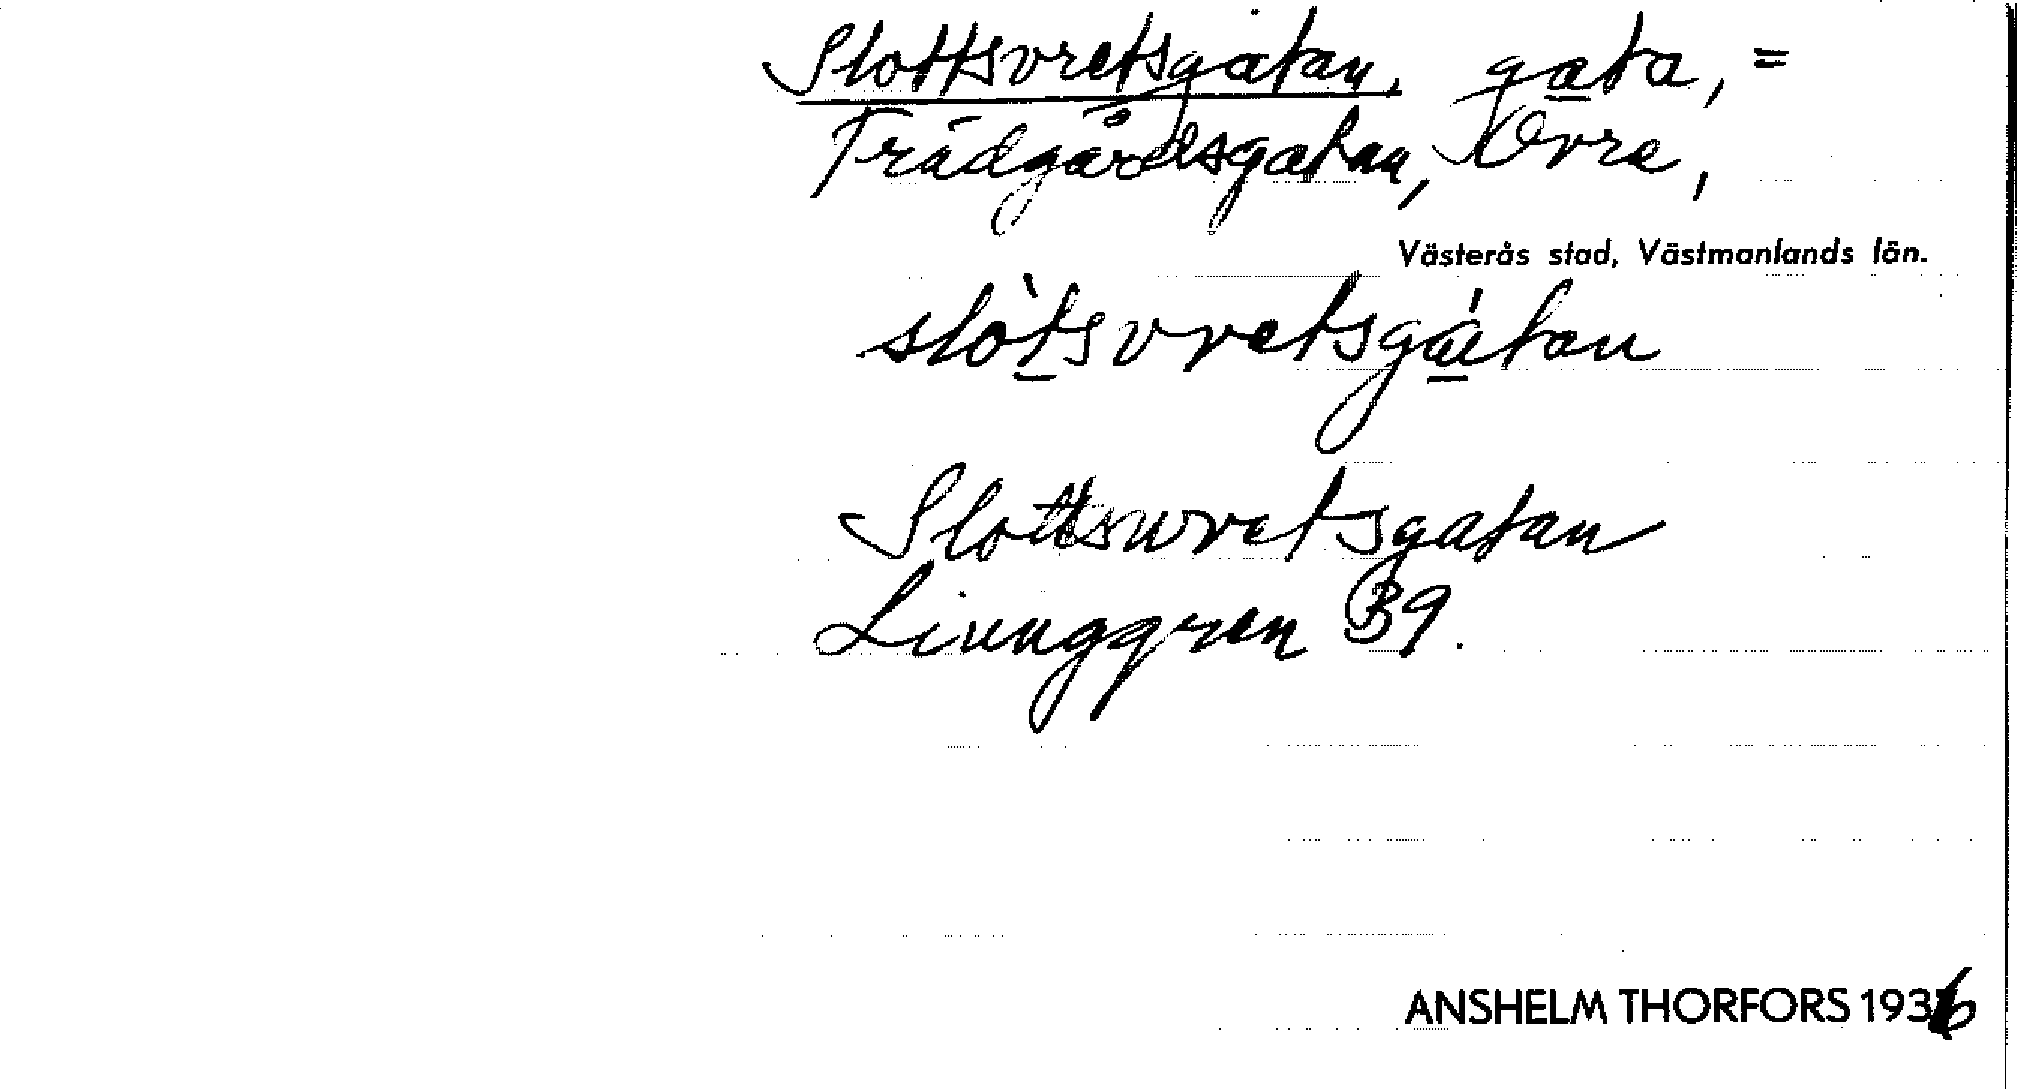 Slottsvretsgatan, gata, =
Trädgårdsgatan, Övre,
Västerås stad, Västmanlands län.
slòtsvretsgátan
Slottswretsgatan
Liunggren 39.
ANSHELM THORFORS 1936